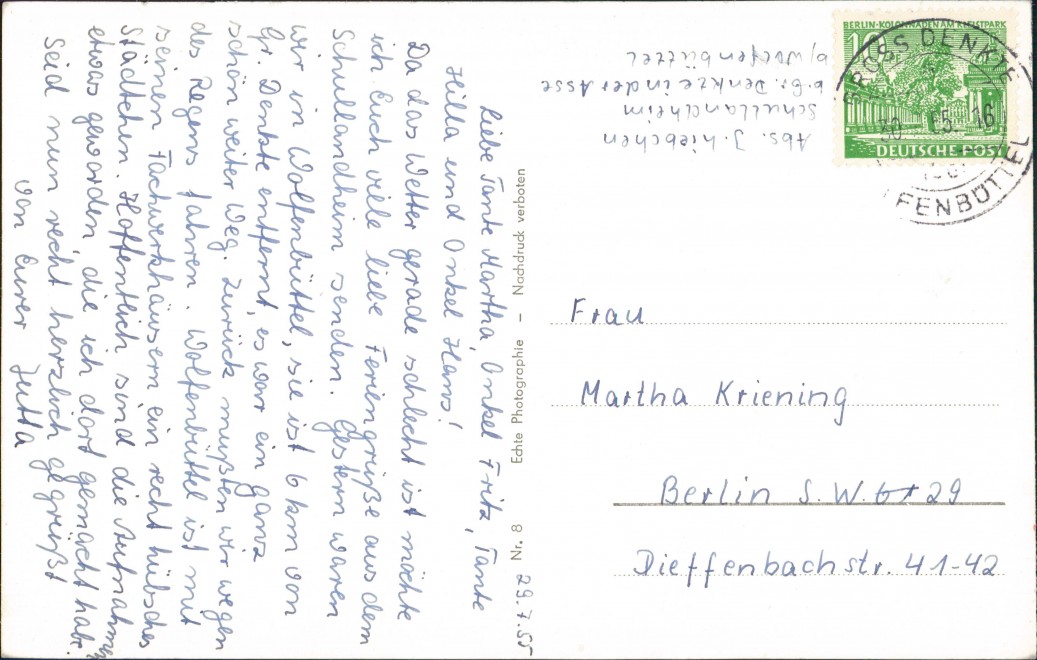 Liebe Tante Martha, Onkel Fritz, Tante
Hilla und Onkel Hans!
Da das Wetter gerade schlecht ist möchte
ich Euch viele liebe Feriengrüße aus dem
Schullandheim senden. Gestern waren
wir in Wolfenbüttel, sie ist 6 km von
Gr. Denkte entfernt, es war ein ganz
schön weiter Weg. Zurück mußten wir wegen
des Regens fahren. Wolfenbüttel ist mit
seinen Fachwerkhäusern ein recht hübsches
Städtchen. Hoffentlich sind die Aufnahmen
etwas geworden, die ich dort gemacht habe.
Seid nun recht herzlich gegrüßt
von Eurer Jutta
Nr. 8 Echte Photographie – Nachdruck verboten
29.7.55
Abs. J. Liebchen
Schullandheim
b. Gr. Denkte in der Asse
b/ Wolfenbüttel
BERLIN-KOLONNADEN AM KLEISTPARK
10
DEUTSCHE POST
GROSS DENKTE
30 55 16
FENBÜTTEL
Frau
Martha Kriening
Berlin S.W. 29
Dieffenbachstr. 41-42